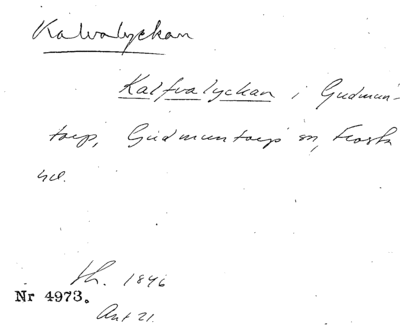 Kalvalyckan
Kalfvalyckan i Gudmun-
torp, Gudmuntorps sn, Frosta
hd.
Sk. 1846
Nr 4973.
Ant 21.